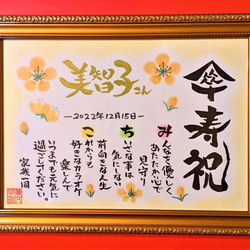 傘寿祝
美智子さん
―2022年12月15日―
みんなで優しく
あたたかい心で
見守り
ちいさな事は
気にしない
前向きな人生
これからも
好きなカラオケ
楽しんで
いつまでも元気に
過ごしてください。
家族一同